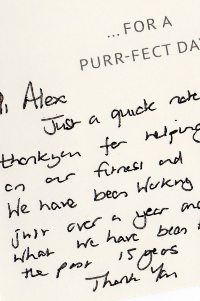 ...FOR A
PURR-FECT DA
Hi Alex
Just a quick note
thankyou for helping
on our fitness and
We have been working
just over a year and
what we have been
the past 15 years
Thank You